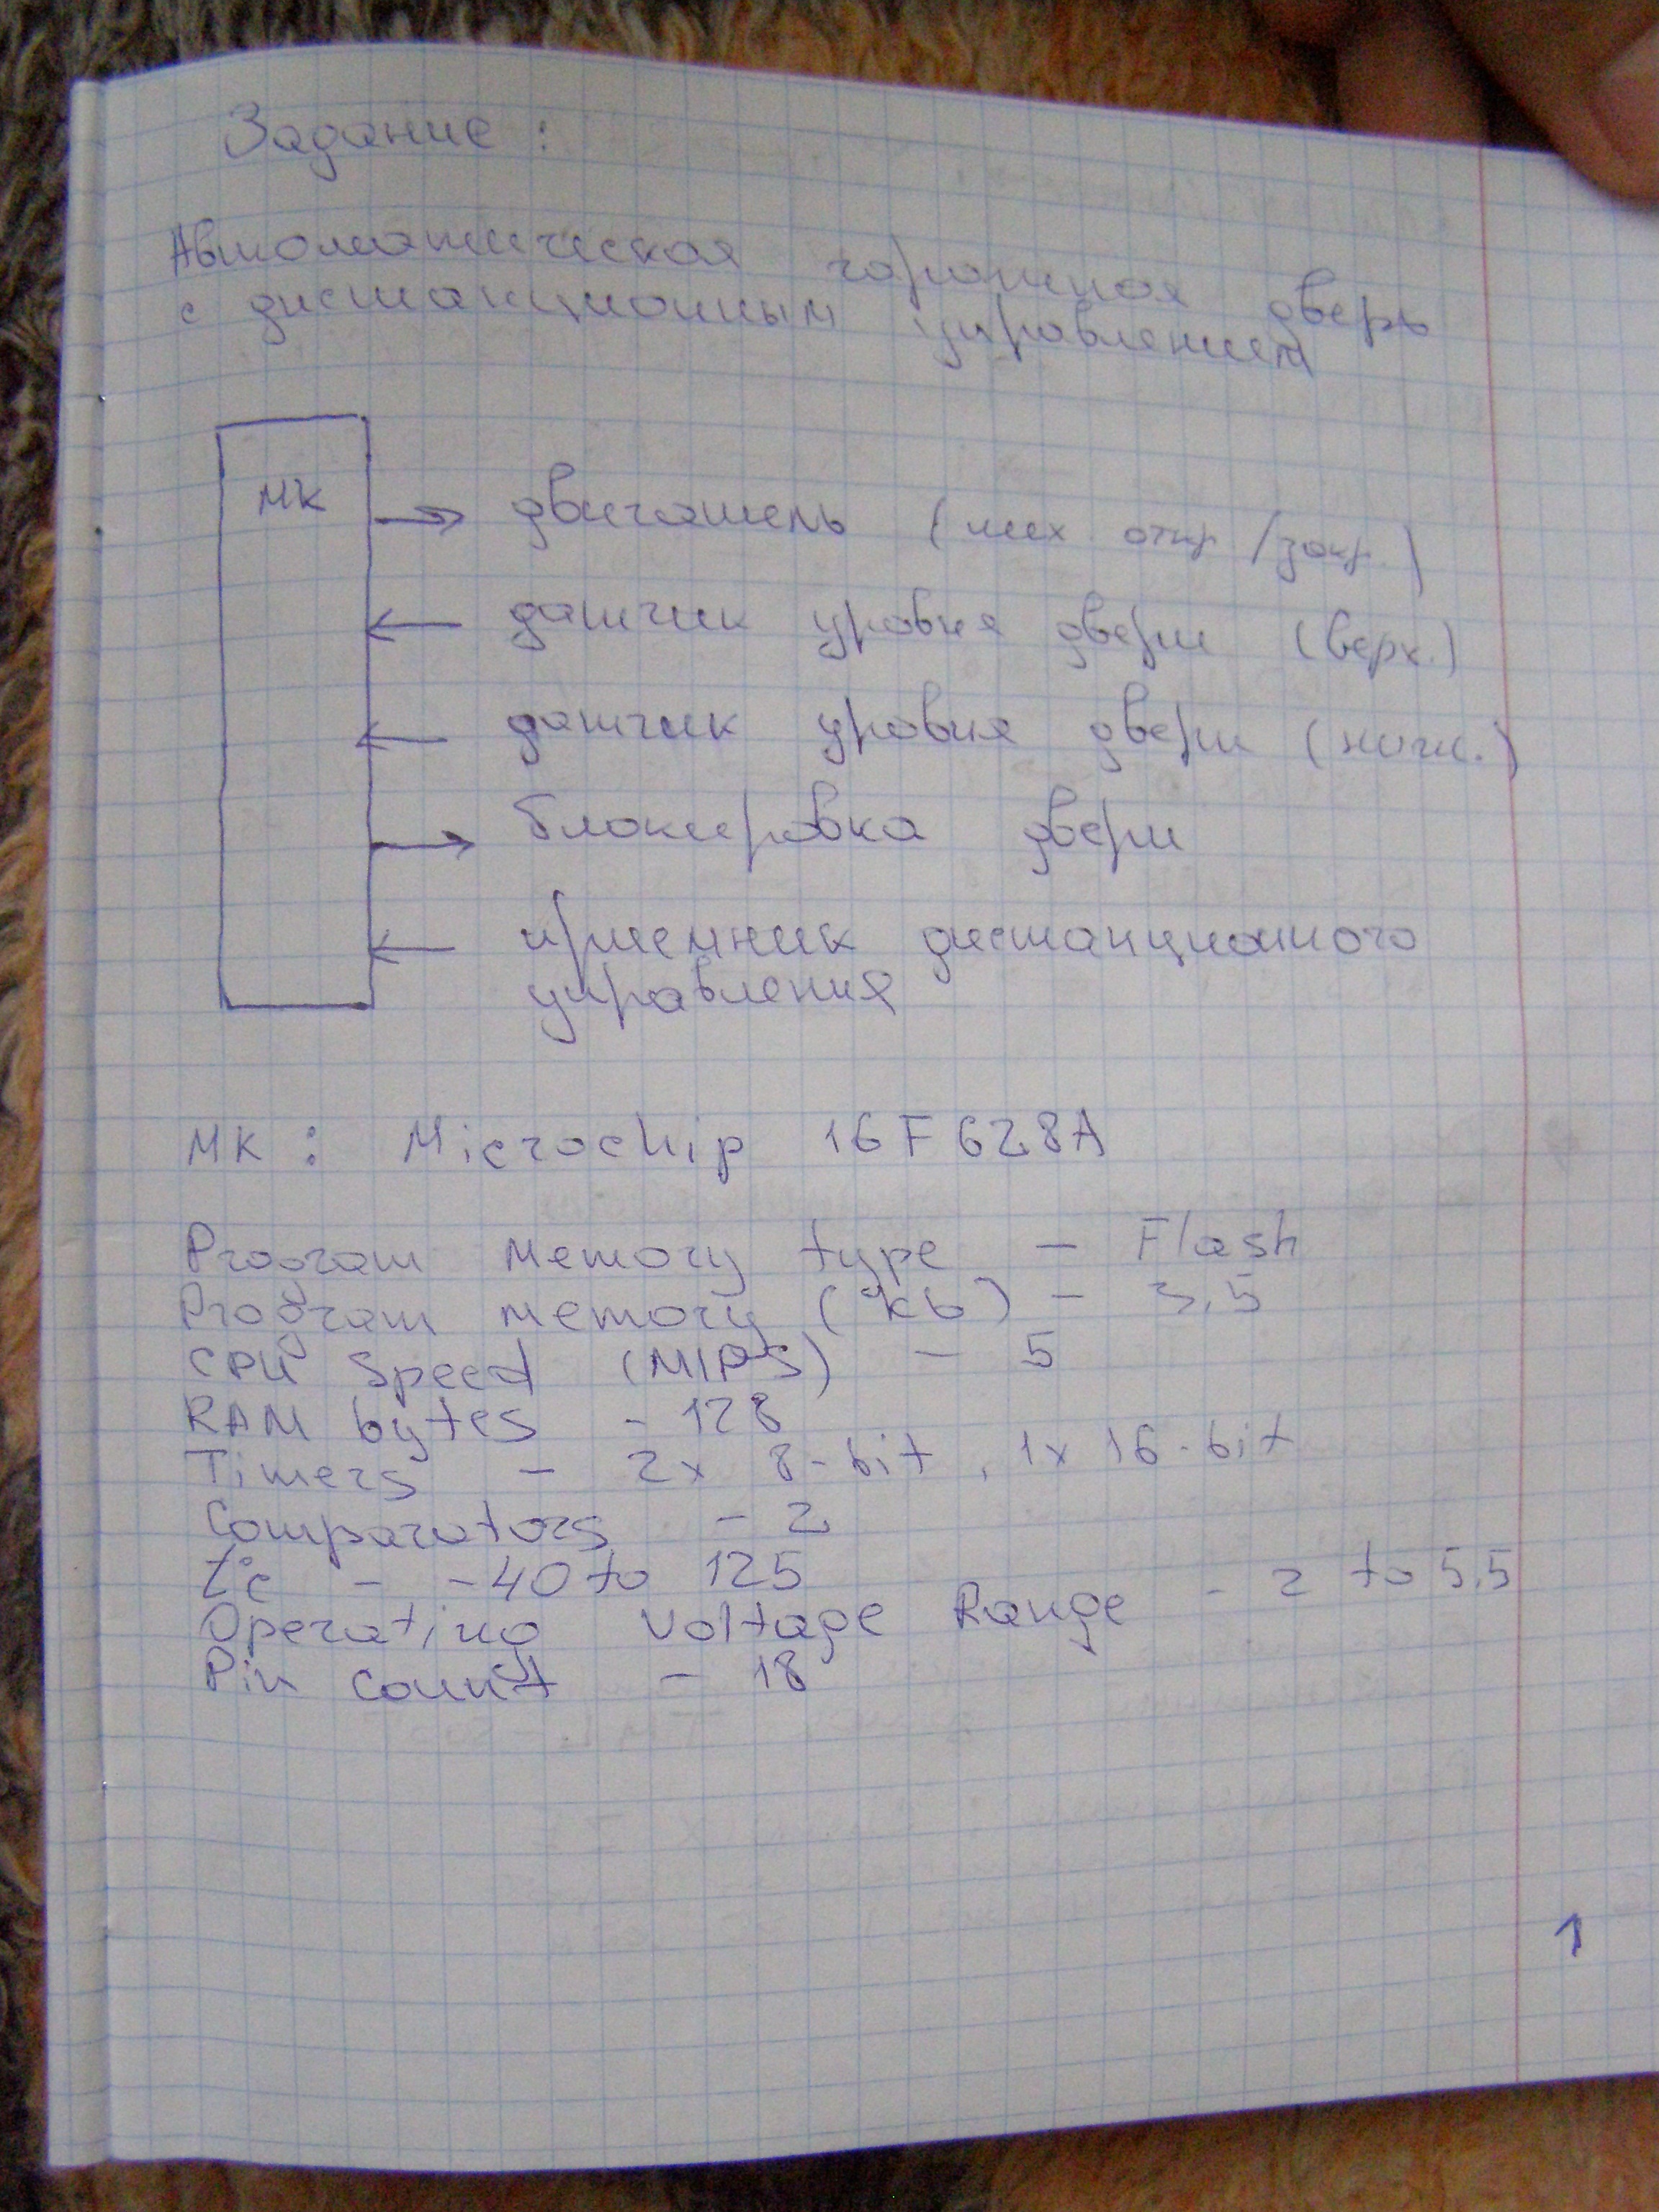 Задание :
Автоматическая гаражная дверь
с дистанционным управлением
МК
двигатель (мех откр /закр.)
датчик уровня двери (верх.)
датчик уровня двери (нижн.)
блокировка двери
приемник дистанционного
управления
МК : Microchip 16F628A
Program Memory type — Flash
Program memory (kb) — 3,5
CPU Speed (MIPS) — 5
RAM bytes - 128
Timers — 2x 8-bit, 1x 16-bit
Comparators - 2
t°c — -40 to 125
Operating Voltage Range - 2 to 5.5
Pin Count — 18
1